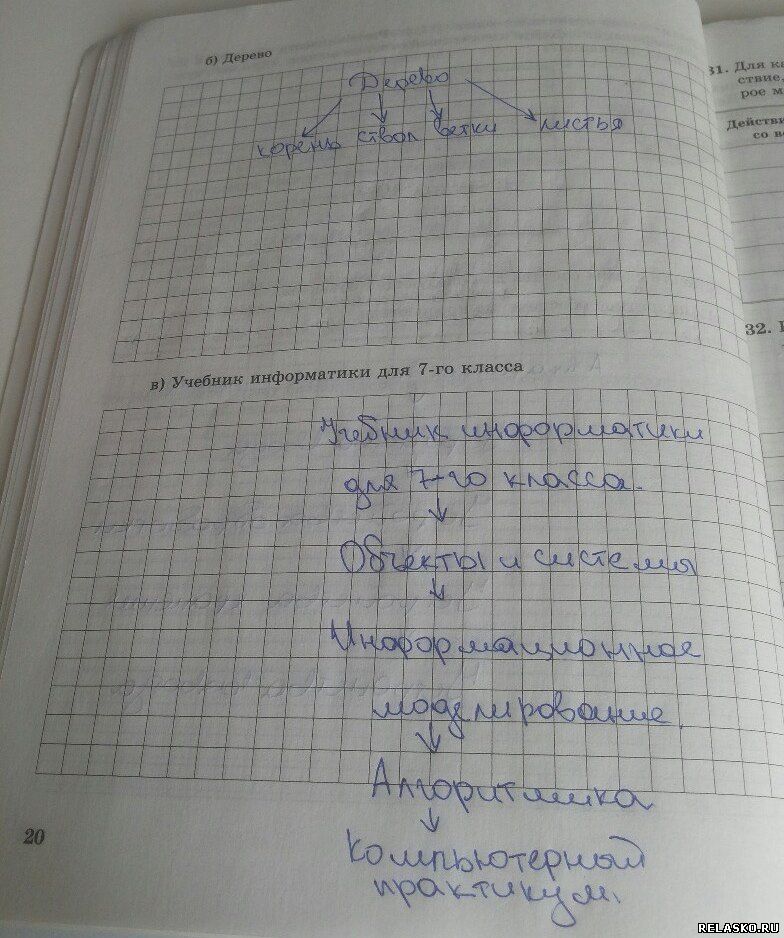 б) Дерево
Дерево
корень ствол ветки листья
в) Учебник информатики для 7-го класса
Учебник информатики
для 7-го класса.
Объекты и системы
Информационное
моделирование
Алгоритмика
Компьютерный
практикум.
20
31. Для ка
ствие,
рое м
Действи
со в
32.
RELASKO.RU